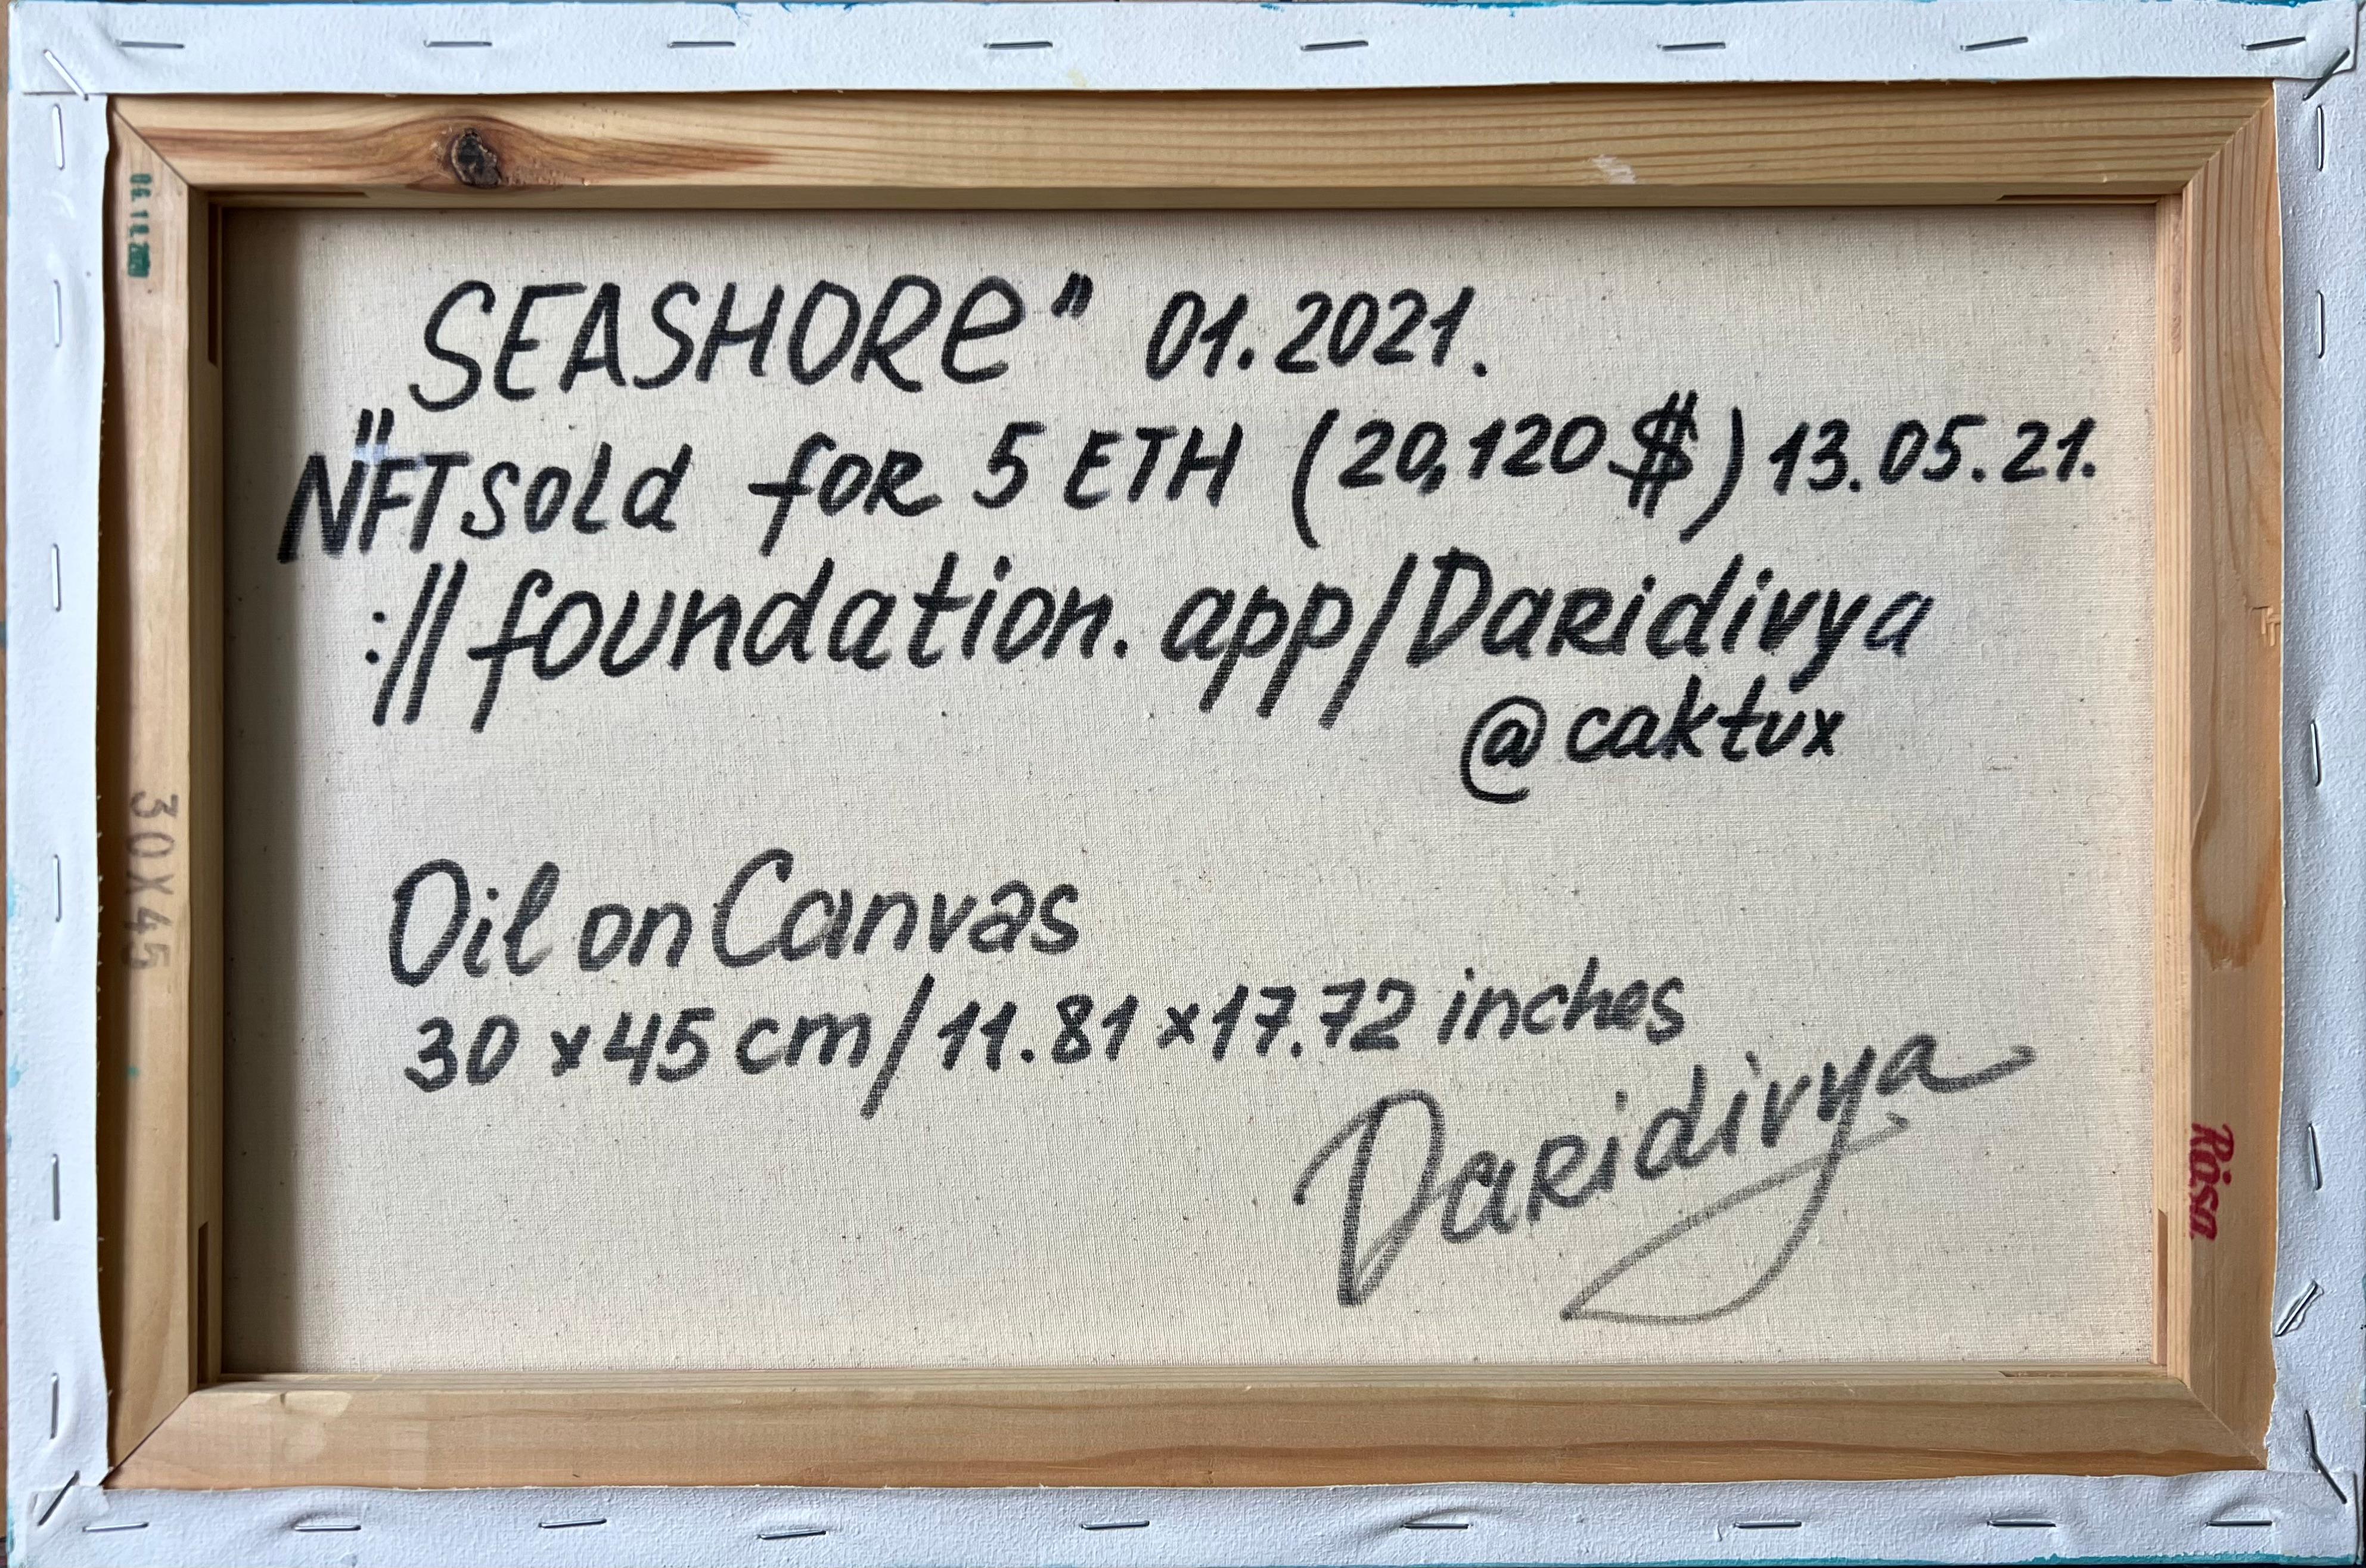 „SEASHORe" 01.2021.
NFT sold foR 5 ETH (20,120 $) 13.05.21.
://foundation.app/DaRidivya
@caktux
Oil on Canvas
30 x 45 cm / 11.81 x 17.72 inches
DaRidivya
30X45
Rosa